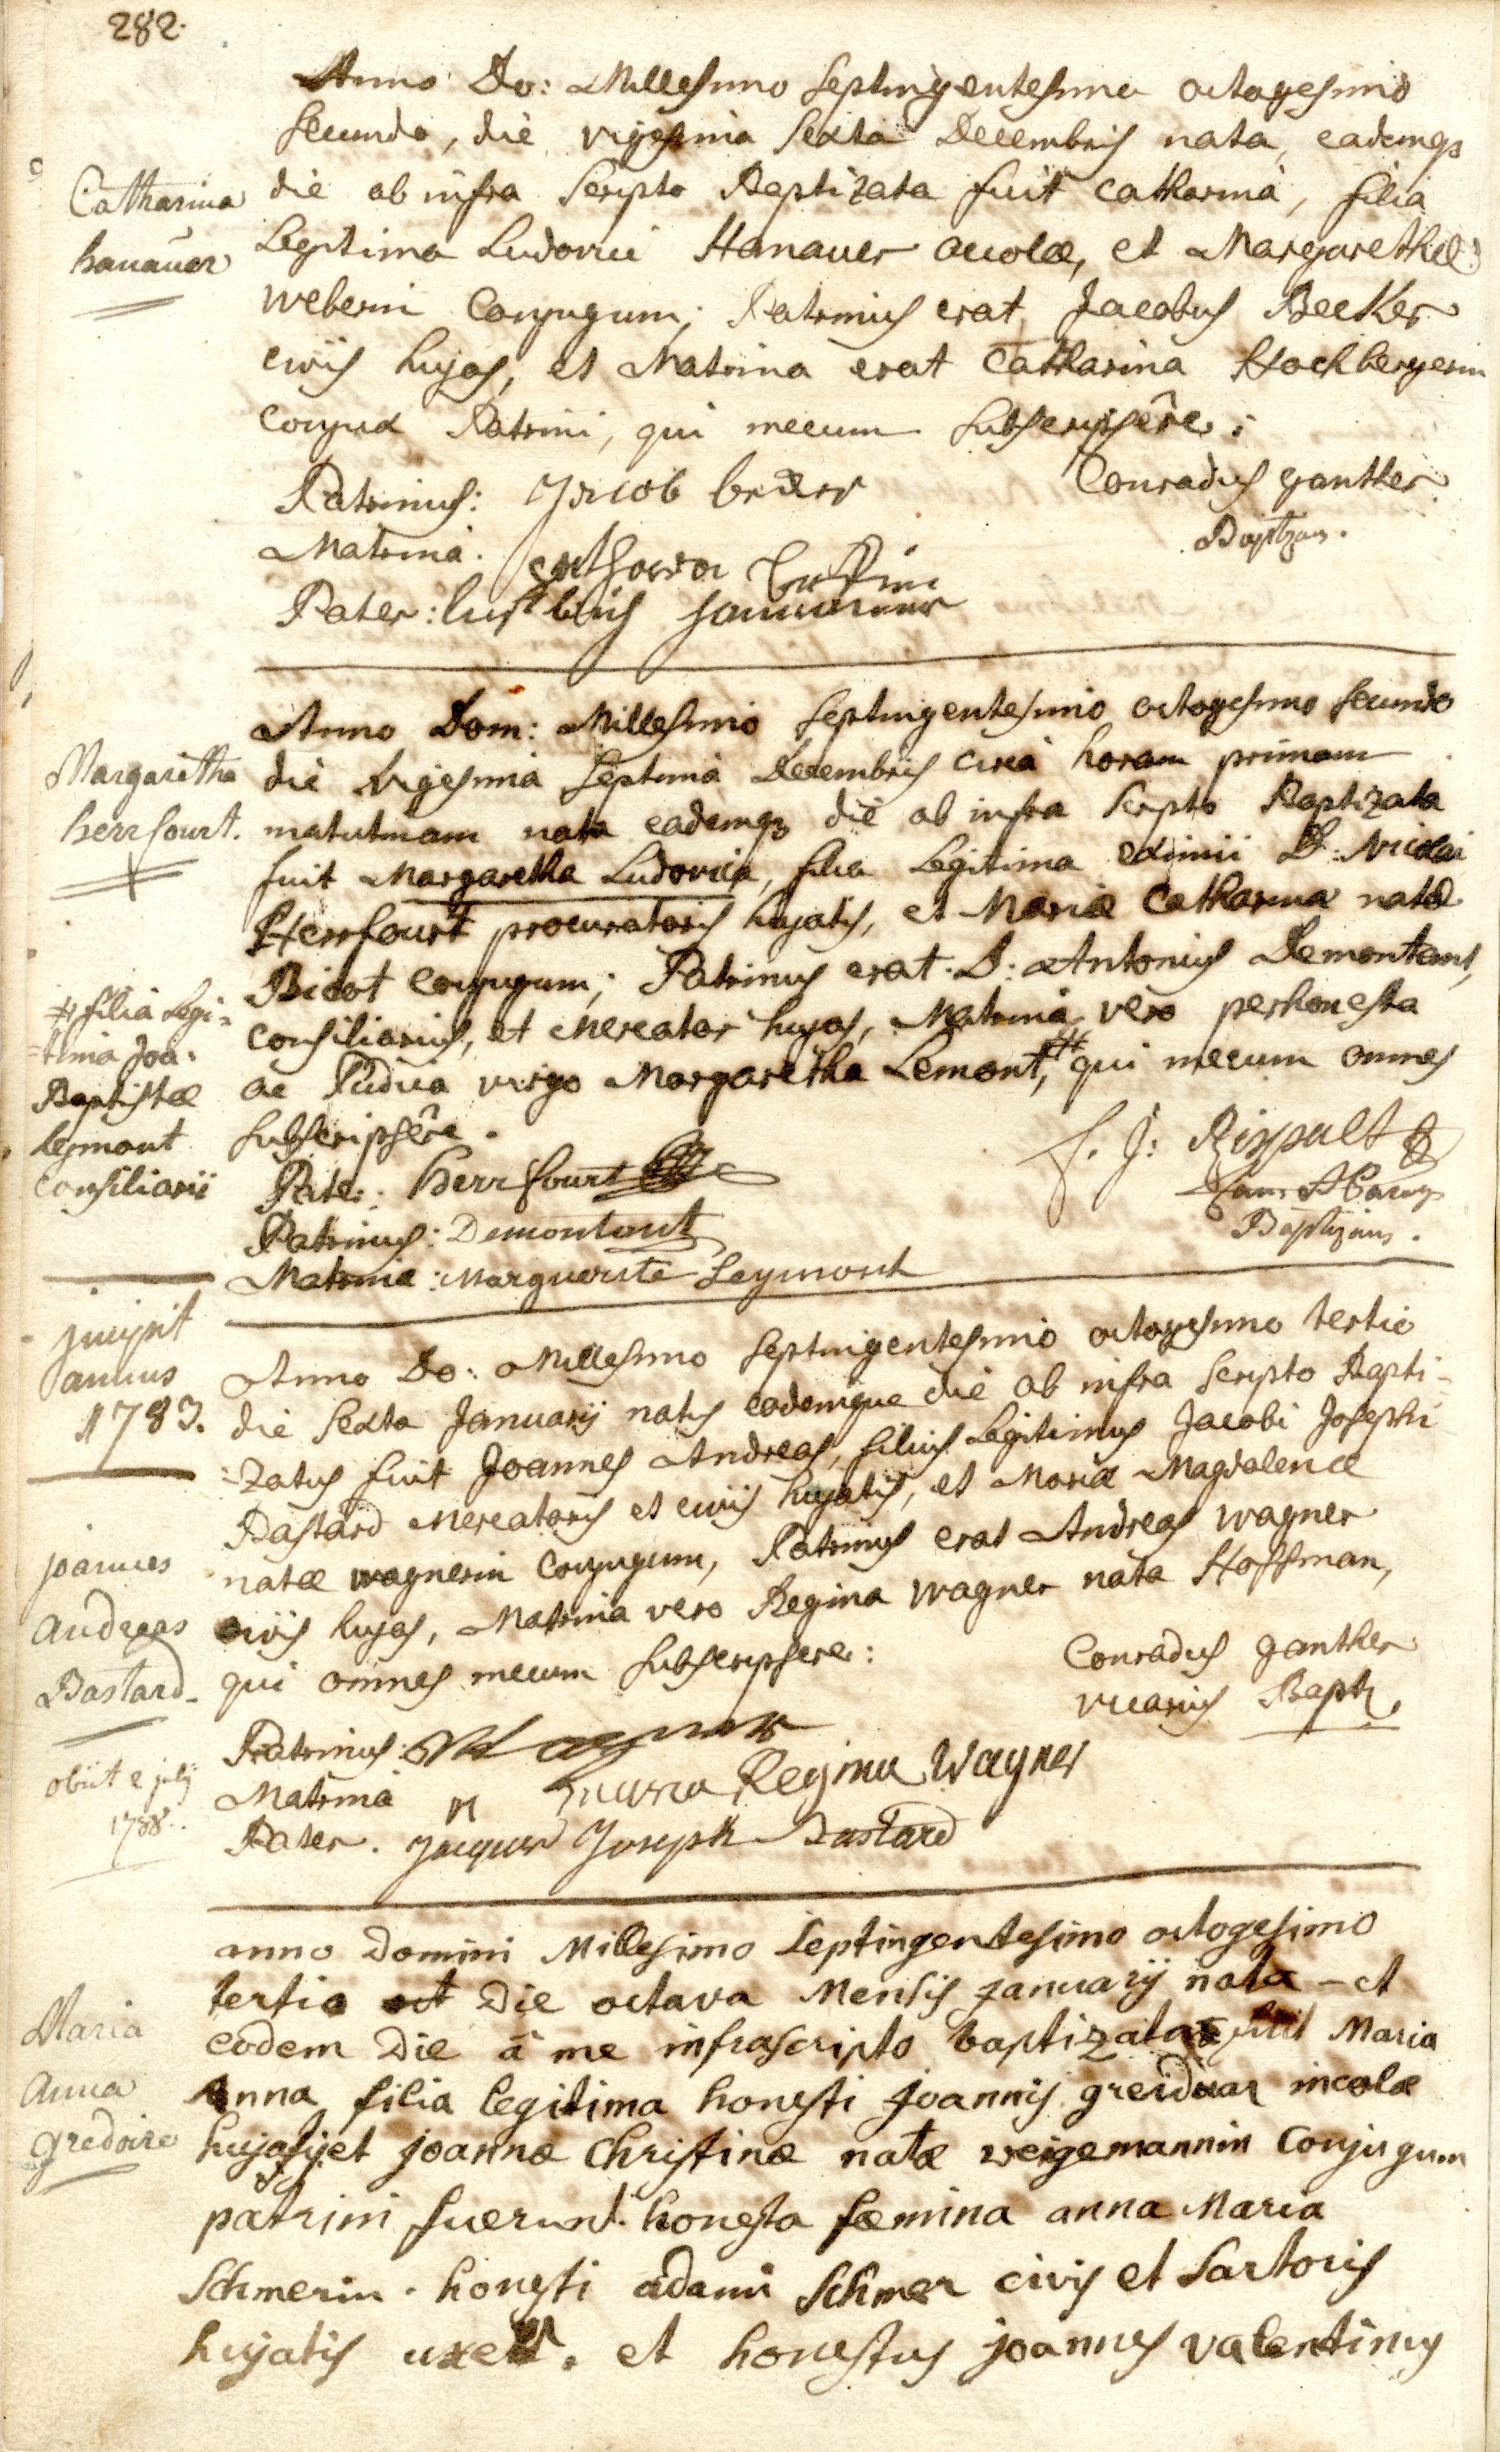 282.
Anno Do: Millesimo Septingentesimo octogesimo
Secundo, die vigesima Sexta Decembris nata, eademq3
die ab infra Scripto Baptizata fuit Catharina, filia
Legitima Ludovici Hanauer accolæ, et Margarethæ
Weberin Conjugum; Patrinus erat Jacobus Becker
civis hujas, et Matrina erat Catharina Hochbergerin
Conjux Patrini, qui mecum Subscripsêre:
Catharina
hanauer
Patrinus: Jacob becker
Conradus ganther
Baptizans.
Matrina:
Pater:
Anno Dom: Millesimo Septingentesimo octogesimo Secundo
die Vigesima Septima Decembris circa horam primam
matutinam nata eademq3 die ab infra Scripto Baptizata
fuit Margaretha Ludovica, filia Legitima eximii D: Nicolai
Herrfourt procuratoris hujatis, et Mariæ Catharinæ natæ
Bicot Conjugum; Patrinus erat D: Antonius Demontant,
Consiliarius, et Mercator hujas, Matrina vero perhonesta
ac Pudica virgo Margaretha Lemont, # qui mecum omnes
Subscripsêre.
Margaretha
herrfourt.
# filia Legi-
-tima Joa.
Baptistæ
Leymont
Consiliarii
Pater: herrfourt
Patrinus: Demontant
Matrina: Marguerite Leymont
Baptizans.
incipit
annus
1783.
Anno Do: Millesimo Septingentesimo octogesimo tertio
die Sexta Januarij natus eademque die ab infra Scripto Bapti-
-zatus fuit Joannes Andreas, filius Legitimus Jacobi Josephi
Bastard Mercatoris et civis hujatis, et Mariæ Magdalenæ
natæ Wagnerin Conjugum, Patrinus erat Andreas Wagner
civis hujas, Matrina vero Regina Wagner nata Hoffman,
qui omnes mecum Subscripsere:
joannes
andreas
Bastard.
obiit 2 julij
1788.
Conradus ganther
vicarius Bapt.
Patrinus: Wagner
Matrina Regina Wagner
Pater. Jacques Joseph Bastard
anno Domini Millesimo Septingentesimo octogesimo
tertio Die octava Mensis januarij nata - et
eodem Die à me infrascripto baptizata fuit Maria
Anna filia legitima honesti joannis greiduar incolæ
hujatis, et joannæ Christinæ natæ weigemannin Conjugum
patrini fuerunt honesta fœmina anna Maria
Schmerin. honesti adami Schmer civis et Sartoris
hujatis uxor. et honestus joannes valentinus
Maria
anna
gredoire